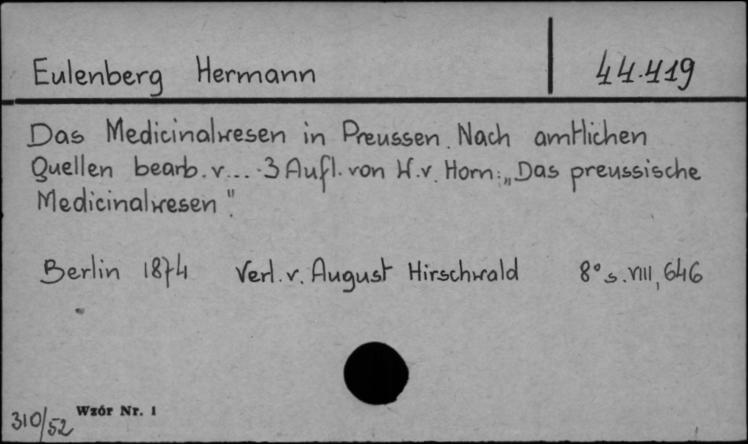 Eulenberg Hermann
44.419
Das Medicinalwesen in Preussen. Nach amtlichen
Quellen bearb. v... 3 Aufl. von W. v. Horn: „Das preussische
Medicinalwesen".
Berlin 1874 Verl. v. August Hirschwald 8° s. VIII, 646
Wzór Nr. 1
310/52